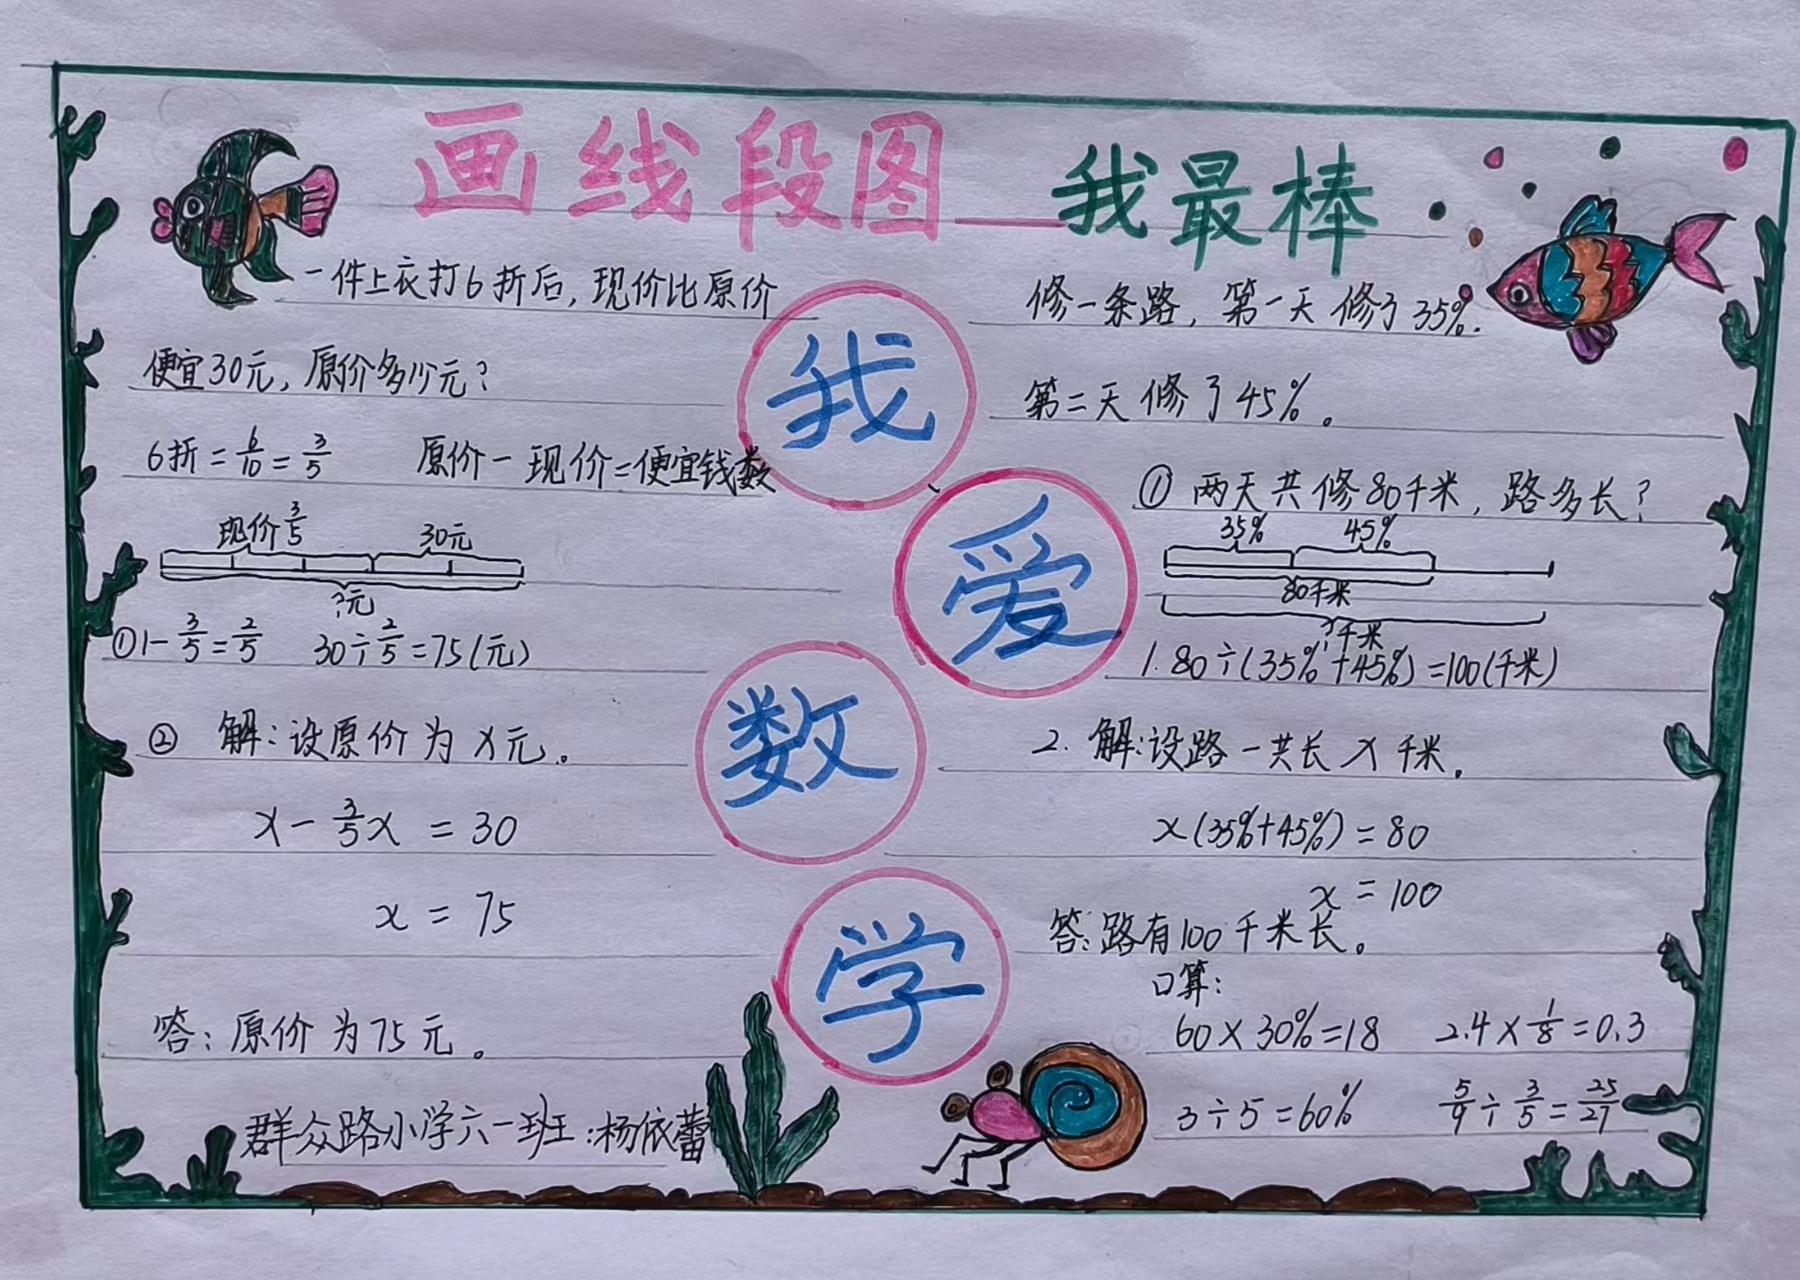 画线段图——我最棒
我
爱
数
学
一件上衣打6折后，现价比原价
便宜30元，原价多少元？
6折=6/10=3/5 原价-现价=便宜钱数
现价3/5 30元
?元
①1-3/5=2/5 30÷2/5=75(元)
② 解:设原价为x元。
x-3/5x=30
x=75
答:原价为75元。
群众路小学六一班:杨依蕾
修一条路，第一天修了35%.
第二天修了45%。
① 两天共修80千米，路多长？
35% 45%
80千米
?千米
1.80÷(35%+45%)=100(千米)
2.解:设路一共长x千米.
x(35%+45%)=80
x=100
答:路有100千米长。
口算:
60×30%=18 2.4×1/8=0.3
3÷5=60% 5/9÷3/5=25/27